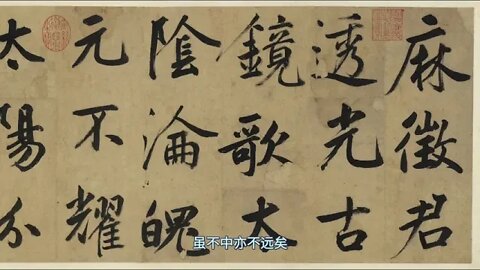 麻徵君
透光古
鏡歌太
陰淪魄
元不耀
太陽分
虽不中亦不远矣